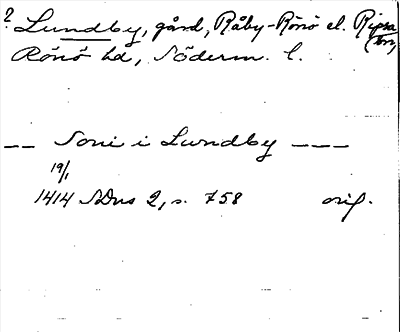 ? Lundby, gård, Råby-Rönö el. Ripsa
(sn)
Rönö hd, Söderm. l.
-- Toni i Lundby ---
19/1
1414 SDns 2, s. 758 orig.